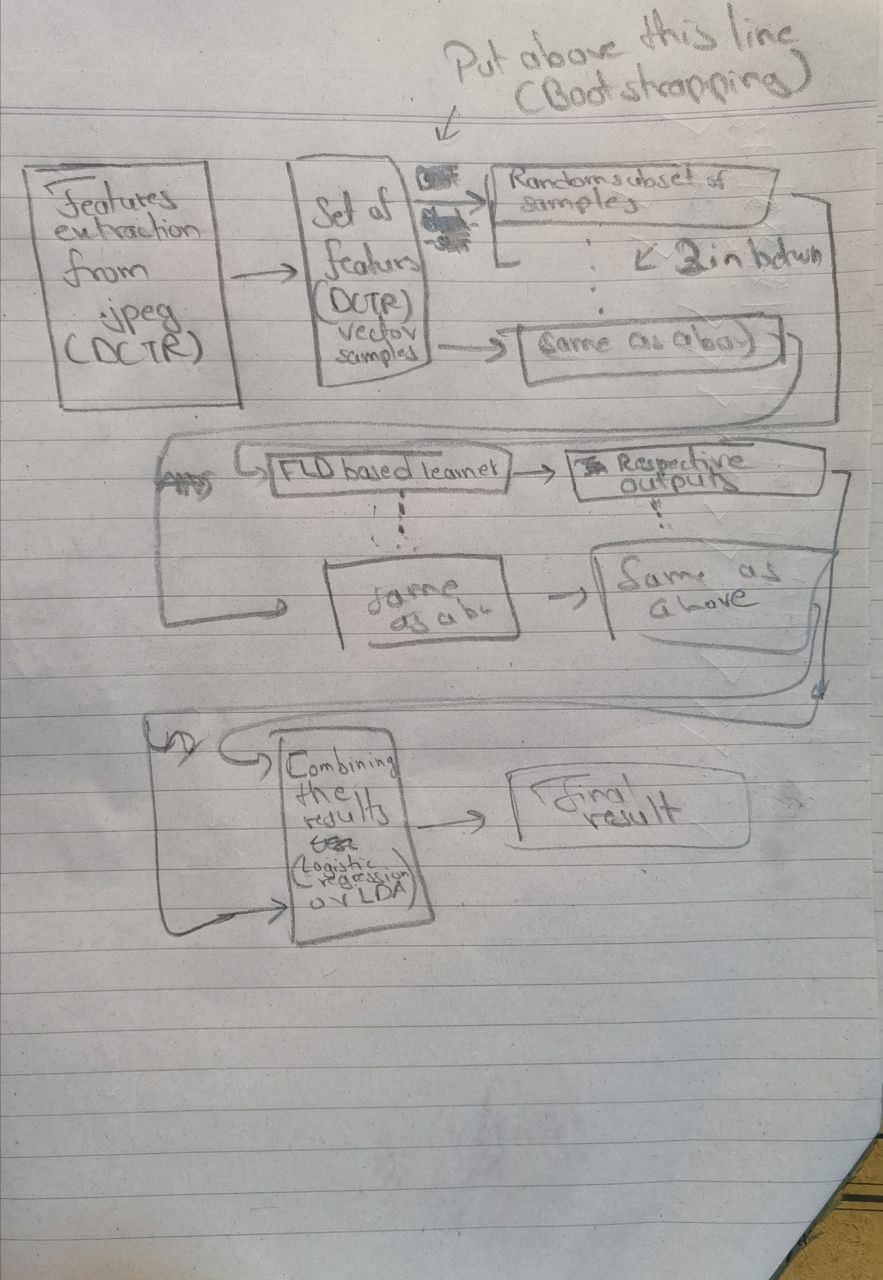 Put above this line
(Bootstrapping)
Features
extraction
from
jpeg
(DCTR)
Set of
featurs
(DCTR)
vector
samples
Random subset of
samples
2 in betwn
Same as above
FLD based learner
Respective
outputs
Same
as abv
Same as
above
Combining
the
results
(Logistic
regression
or LDA)
Final
result